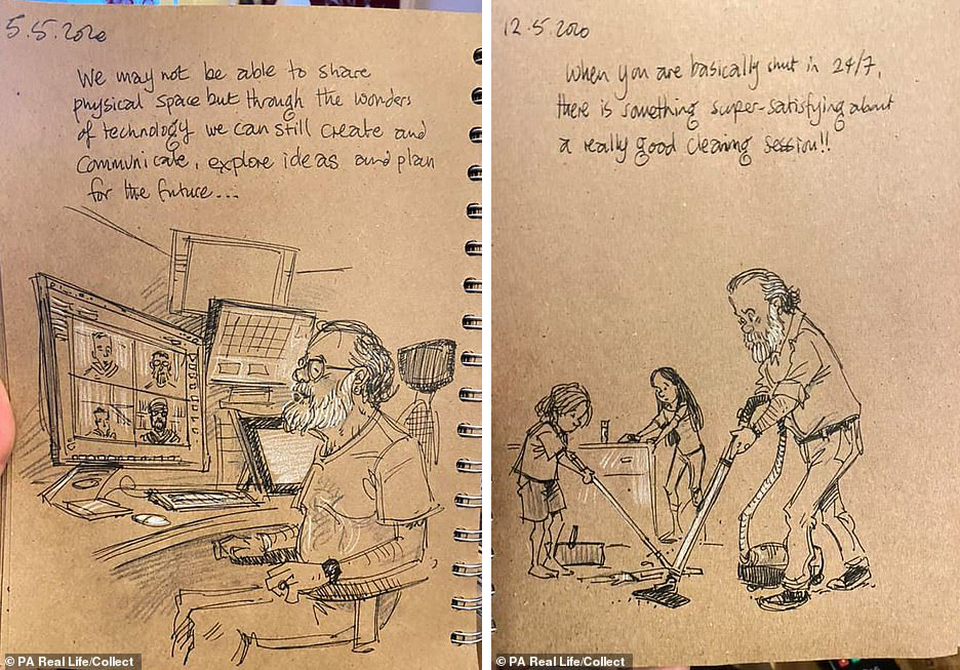 5.5.2020
We may not be able to share
physical space but through the wonders
of technology we can still create and
communicate, explore ideas and plan
for the future...
© PA Real Life/Collect
12.5.2020
When you are basically shut in 24/7,
there is something super-satisfying about
a really good cleaning session!!
© PA Real Life/Collect